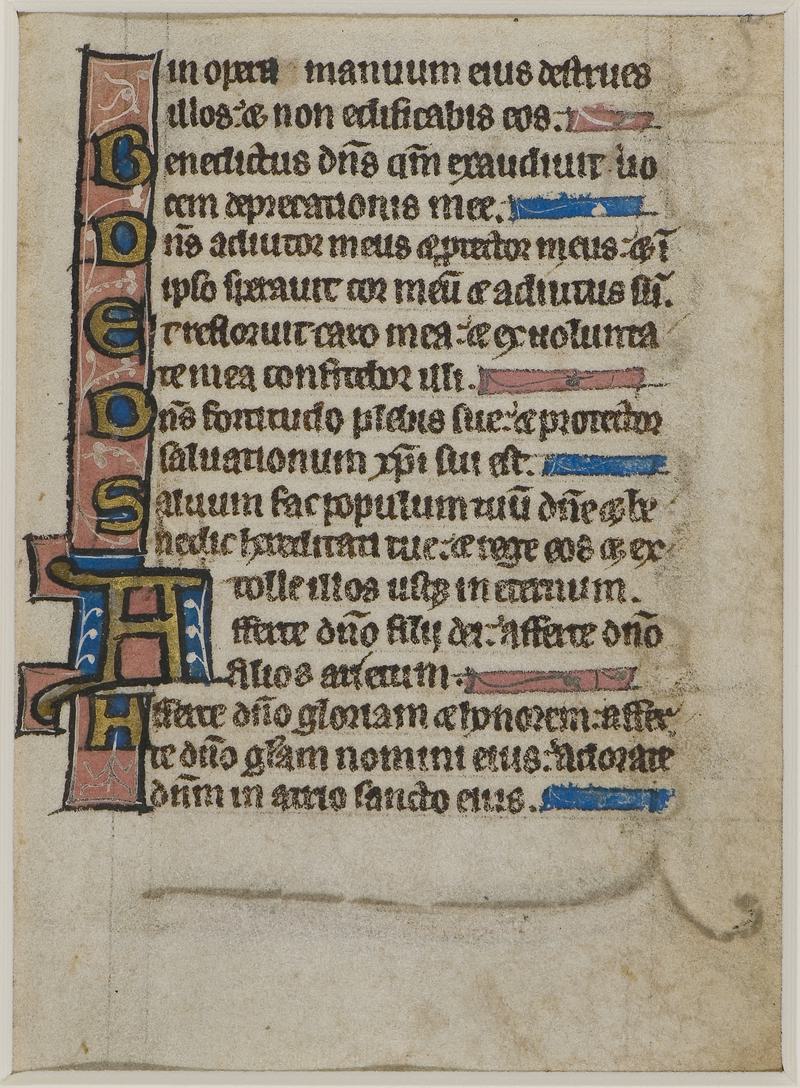 in opera manuum eius destrues
illos: & non edificabis eos.
Benedictus dn̄s qm̄ exaudiuit uo
cem deprecationis mee.
Dn̄s adiutor meus & ꝓtector meus: & ī
ipso sperauit cor meū & adiutus sū.
Et refloruit caro mea: & ex uolunta
te mea confitebor illi.
Dn̄s fortitudo plebis sue: & protector
saluationum xp̄i sui est.
Saluum fac populum tuū dn̄e & be
nedic hereditati tue: & rege eos & ex
tolle illos usqꝫ in eternum.
Afferte dn̄o filij dei: afferte dn̄o
filios arietum.
Afferte dn̄o gloriam & honorem: affer
te dn̄o gl̄am nomini eius: adorate
dn̄m in atrio sancto eius.